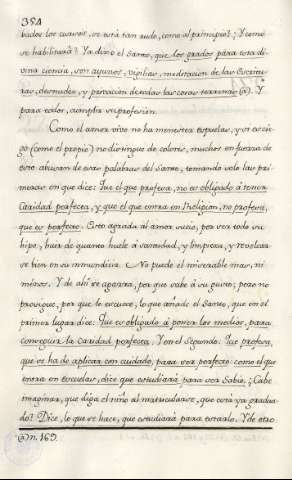 354
bados los cursos, se está tan rudo, como al principio?; Y como
se habilitará? Ya dixo el Santo, que los grados para esta di-
vina ciencia, son ayunos, vigilias, meditacion de las Escritu-
ras, desnudez, y privacion de todas las cosas terrenas (a). Y
para todos, cumplir su profesion.
Como el amor vivo no ha menester espuelas, y es cie-
go (como el propio) no distingue de colores, muchos en fuerza de
esto abusan de estas palabras del Santo, tomando solo las pri-
meras en que dice: Que el que profesa, no es obligado á tener
Caridad perfecta, y que el que entra en Religion, no profesa,
que es perfecto. Esto agrada al amor sucio, por ser todo su
hipo, huir de quanto huele á santidad, y limpieza, y revolcar-
se bien en su inmundicia. No puede el miserable mas, ni
menos. Y de ahí se agarra, por que sabe á su gusto; pero no
prosigue, por que le escuece, lo que añade el Santo, que en el
primer lugar dice: Que es obligado á poner los medios, para
conseguir la Caridad perfecta. Y en el Segundo: Que profesa,
que se ha de aplicar con cuidado, para ser perfecto: como el que
entra en Escuelas, dice que estudiará para ser Sabio. ¿Cabe
imaginar, que diga el niño al matricularse, que está ya gradua-
do? Dice, lo que se hace, que estudiará para estarlo. Y de otro
(a) n. 169.